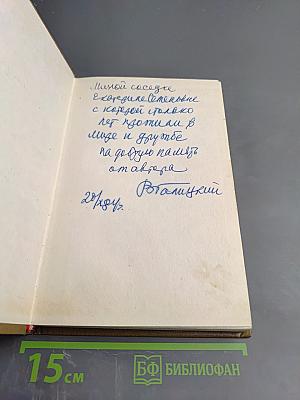 Милой соседке
Екатерине Семеновне
с которой столько
лет прожили в
мире и дружбе
на добрую память
от автора
В Галицкий
15 см
БФ БИБЛИОФАН